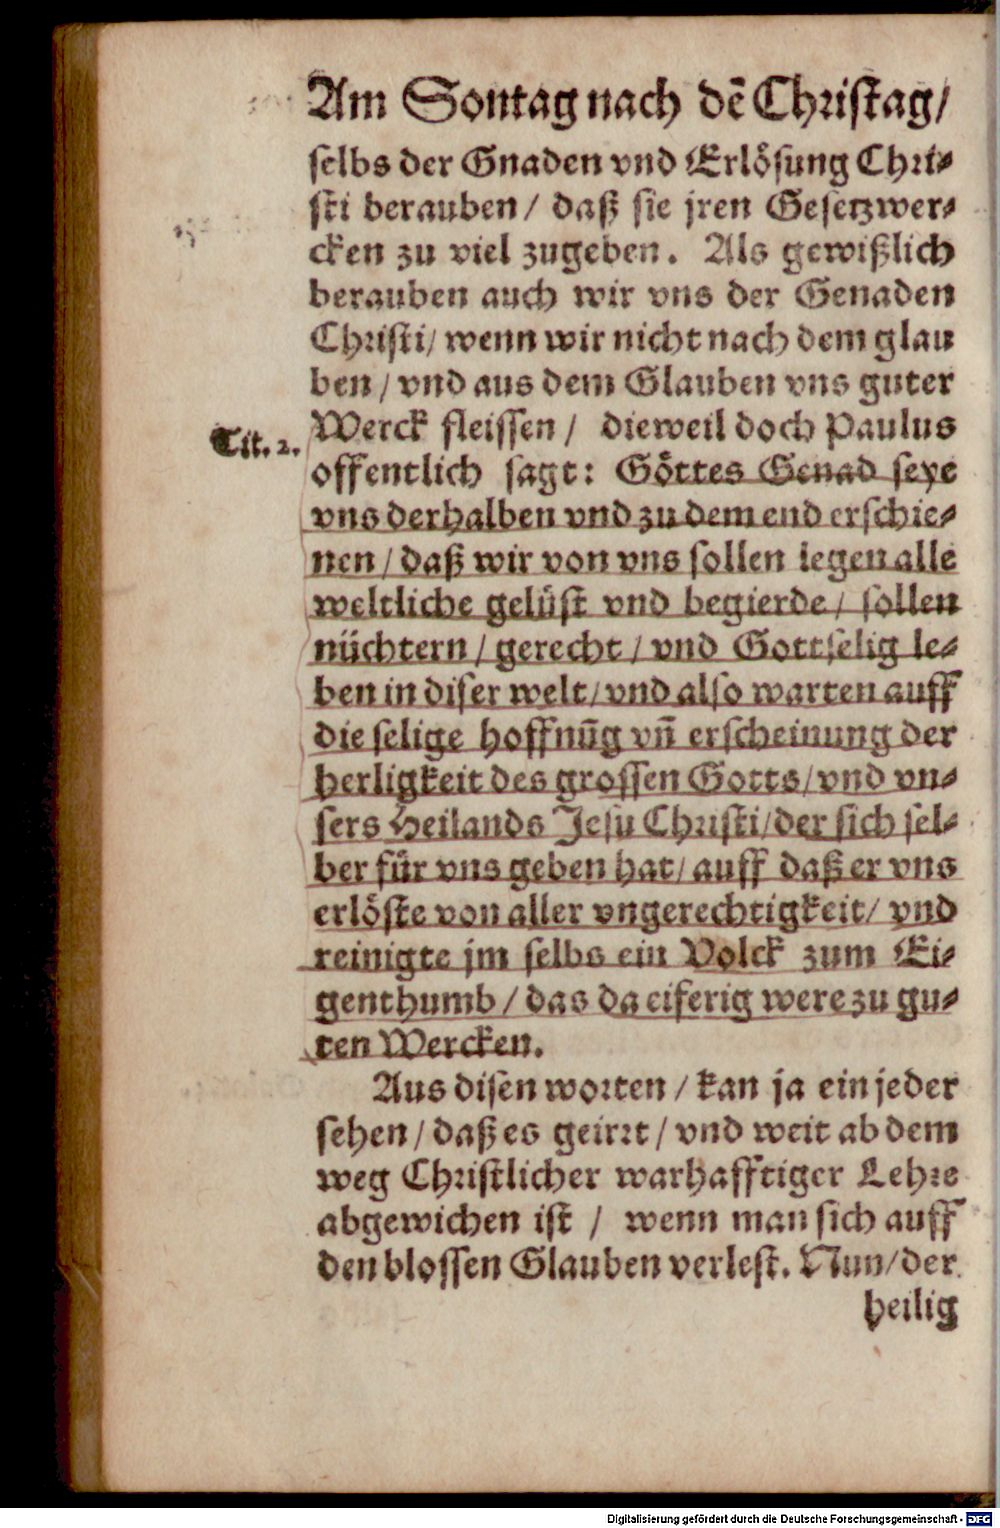 Am Sontag nach dẽ Christag/
selbs der Gnaden vnd Erlösung Chri-
sti berauben/ daß sie jren Gesetzwer-
cken zu viel zugeben. Als gewißlich
berauben auch wir vns der Genaden
Christi/ wenn wir nicht nach dem glau
ben/ vnd aus dem Glauben vns guter
Werck fleissen/ dieweil doch Paulus
Tit. 2.
offentlich sagt: Göttes Genad seye
vns derhalben vnd zu dem end erschie-
nen/ daß wir von vns sollen legen alle
weltliche gelüst vnd begierde/ sollen
nüchtern/ gerecht/ vnd Gottselig le-
ben in diser welt/ vnd also warten auff
die selige hoffnũg vñ erscheinung der
herligkeit des grossen Gotts/ vnd vn-
sers Heilands Jesu Christi/ der sich sel-
ber für vns geben hat/ auff daß er vns
erlöste von aller vngerechtigkeit/ vnd
reinigte jm selbs ein Volck zum Ei-
genthumb/ das da eiferig were zu gu-
ten Wercken.
Aus disen worten/ kan ja ein jeder
sehen/ daß es geirrt/ vnd weit ab dem
weg Christlicher warhafftiger Lehre
abgewichen ist/ wenn man sich auff
den blossen Glauben verlest. Nun/ der
heilig
Digitalisierung gefördert durch die Deutsche Forschungsgemeinschaft - DFG